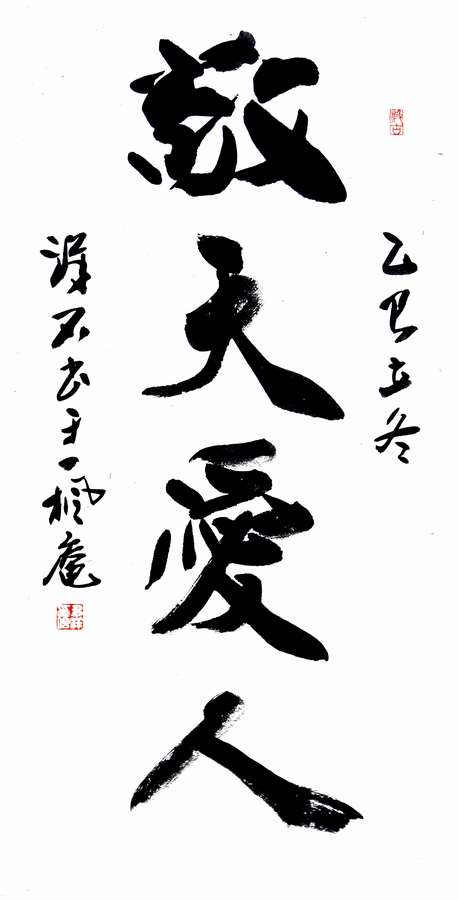 乙巳立冬
敬天愛人
石書于一楓庵